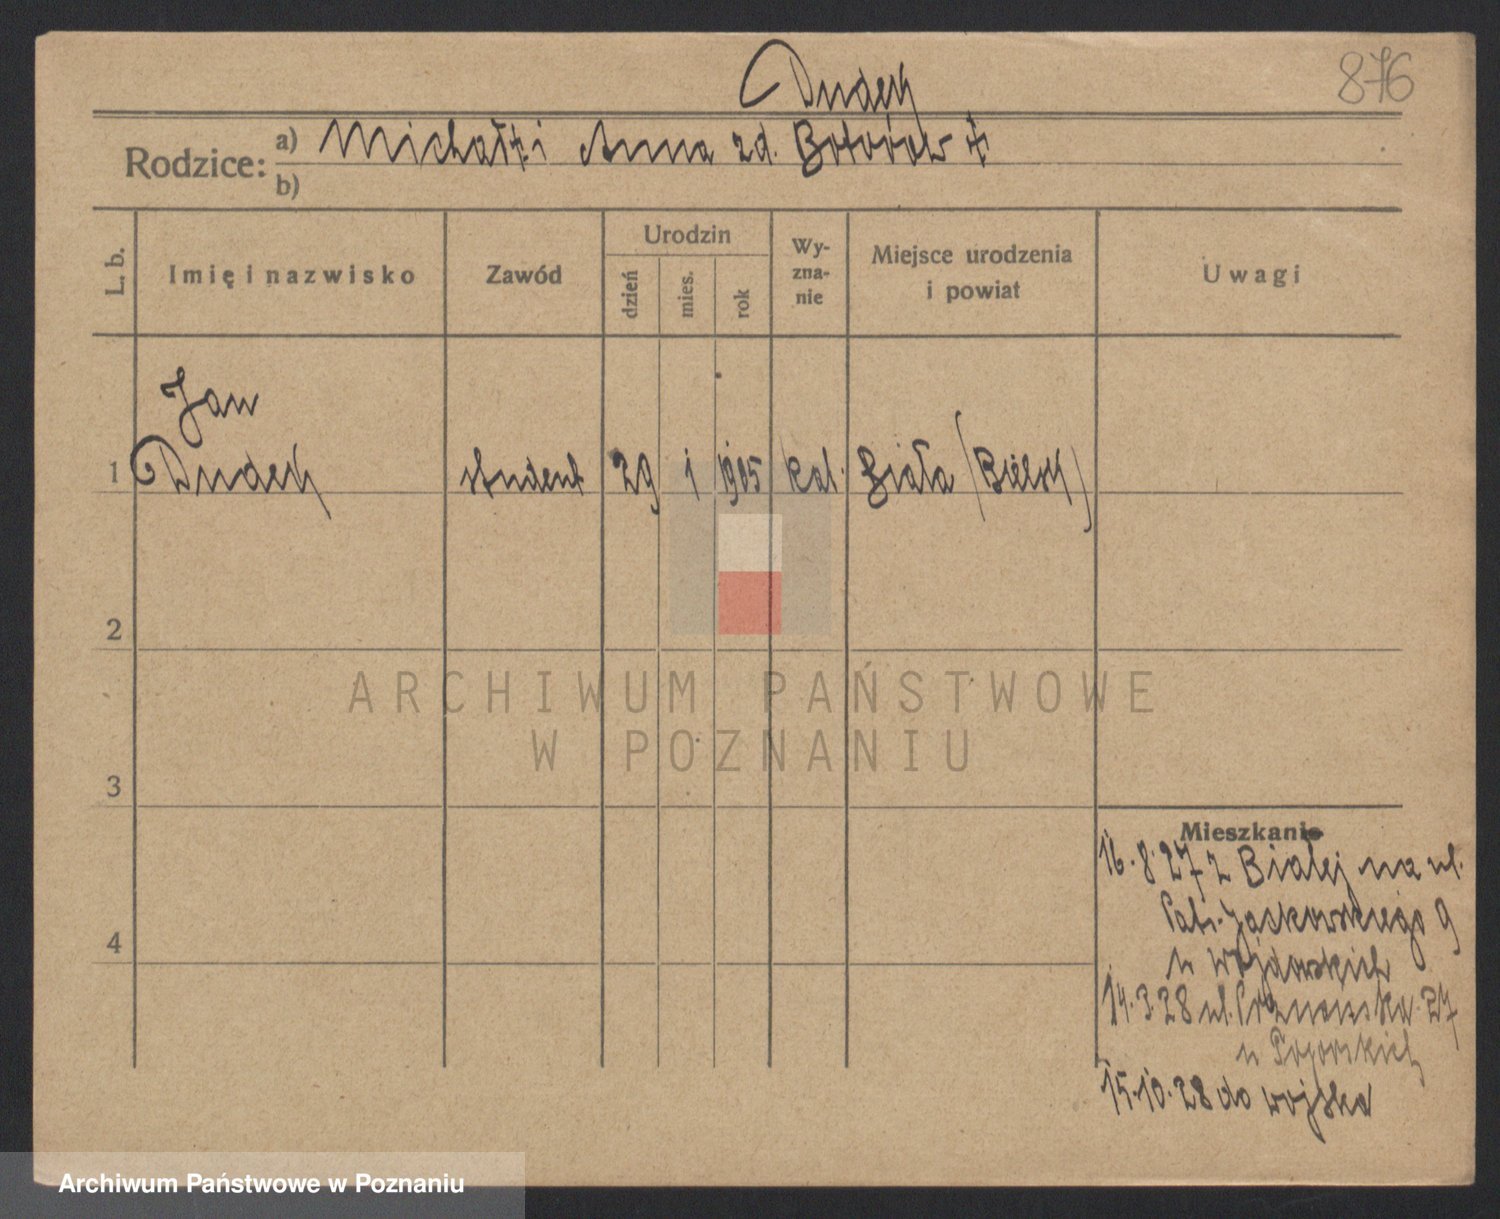 876
Dudek
Rodzice:
a) Michał † i Anna zd. †
b)
L. b.
Imię i nazwisko
Zawód
Urodzin
dzień
mies.
rok
Wy-
zna-
nie
Miejsce urodzenia
i powiat
Uwagi
Jan
1 Dudek student 29 1 1905 kat. Biała (Bielsk)
2
ARCHIWUM PAŃSTWOWE
W POZNANIU
3
4
Mieszkanie
16.8.27 z Białej na ul.
Jackowskiego 9
u
14.3.28 ul. Poznańska 27
u
15.10.28 do wojska
Archiwum Państwowe w Poznaniu